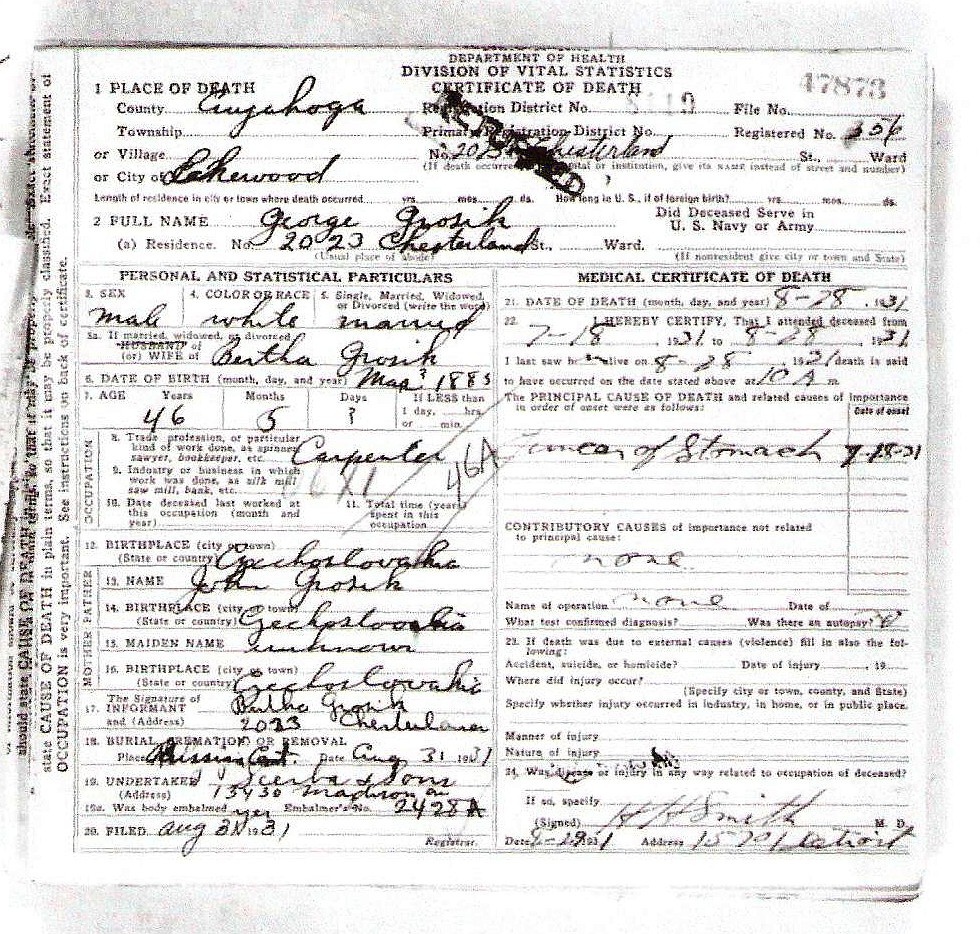 DEPARTMENT OF HEALTH
DIVISION OF VITAL STATISTICS
CERTIFICATE OF DEATH
47873
1 PLACE OF DEATH
County Cuyahoga Registration District No. File No.
Township Primary Registration District No. Registered No. 356
or Village No. Chesterland St., Ward
or City of Lakewood (If death occurred hospital or institution, give its NAME instead of street and number)
Length of residence in city or town where death occurred yrs. mos. ds. How long in U. S., if of foreign birth? yrs. mos. ds.
2 FULL NAME George Grosik Did Deceased Serve in U. S. Navy or Army
(a) Residence. No. 2023 Chesterland St., Ward.
(Usual place of abode) (If nonresident give city or town and State)
PERSONAL AND STATISTICAL PARTICULARS
3. SEX 4. COLOR OR RACE 5. Single, Married, Widowed, or Divorced (write the word)
male white married
5a. If married, widowed, or divorced
HUSBAND of
(or) WIFE of Bertha Grosik
6. DATE OF BIRTH (month, day, and year) Mar ? 1885
7. AGE Years Months Days If LESS than
46 5 ? 1 day, hrs.
or min.
OCCUPATION
8. Trade, profession, or particular
kind of work done, as spinner, Carpenter
sawyer, bookkeeper, etc.
9. Industry or business in which
work was done, as silk mill
saw mill, bank, etc.
46A
10. Date deceased last worked at 11. Total time (years)
this occupation (month and spent in this
year) occupation
12. BIRTHPLACE (city or town)
(State or country) Czechoslovakia
FATHER
13. NAME John Grosik
14. BIRTHPLACE (city or town)
(State or country) Czechoslovakia
MOTHER
15. MAIDEN NAME unknown
16. BIRTHPLACE (city or town)
(State or country) Czechoslovakia
The Signature of
17. INFORMANT Bertha Grosik
and (Address) 2033
18. BURIAL, CREMATION, OR REMOVAL
Place Date Aug 31 1931
19. UNDERTAKER & Sons
(Address) 13430 Madison
19a. Was body embalmed yes Embalmer's No. 2428A
20. FILED Aug 31 1931
Registrar.
MEDICAL CERTIFICATE OF DEATH
21. DATE OF DEATH (month, day, and year) 8-28 1931
22. I HEREBY CERTIFY, That I attended deceased from
7-18 1931 to 8-28 1931
I last saw him alive on 8-28 1931 death is said
to have occurred on the date stated above at 10 A m.
The PRINCIPAL CAUSE OF DEATH and related causes of importance
in order of onset were as follows: Date of onset
Cancer of Stomach 7-18-31
CONTRIBUTORY CAUSES of importance not related
to principal cause:
none
Name of operation none Date of
What test confirmed diagnosis? Was there an autopsy?
23. If death was due to external causes (violence) fill in also the following:
Accident, suicide, or homicide? Date of injury , 19
Where did injury occur?
(Specify city or town, county, and State)
Specify whether injury occurred in industry, in home, or in public place.
Manner of injury
Nature of injury
24. Was disease or injury in any way related to occupation of deceased?
If so, specify
(Signed) H H Smith M. D.
Date 8-29 1931 Address 15701 Detroit
state CAUSE OF DEATH in plain terms, so that it may be properly classified. Exact statement of
OCCUPATION is very important. See instructions on back of certificate.